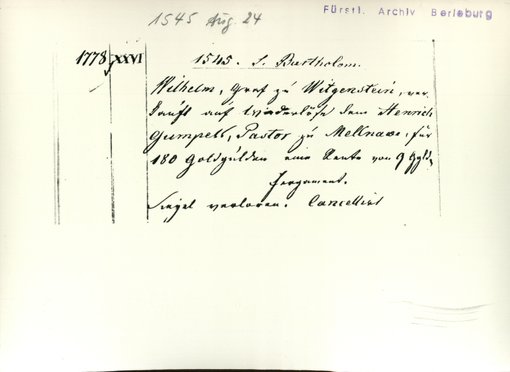 1545 Aug. 24
Fürstl. Archiv Berleburg
1778 XXVI
1545. S. Bartholom.
Wilhelm, Graf zu Witgenstein, ver-
kauft auf Wiederlöse dem Henrich
Gumpell, Pastor zu Mellnau, für
180 Goldgulden eine Rente von 9 Ggld.
Fragment.
Siegel verloren. Cancellirt